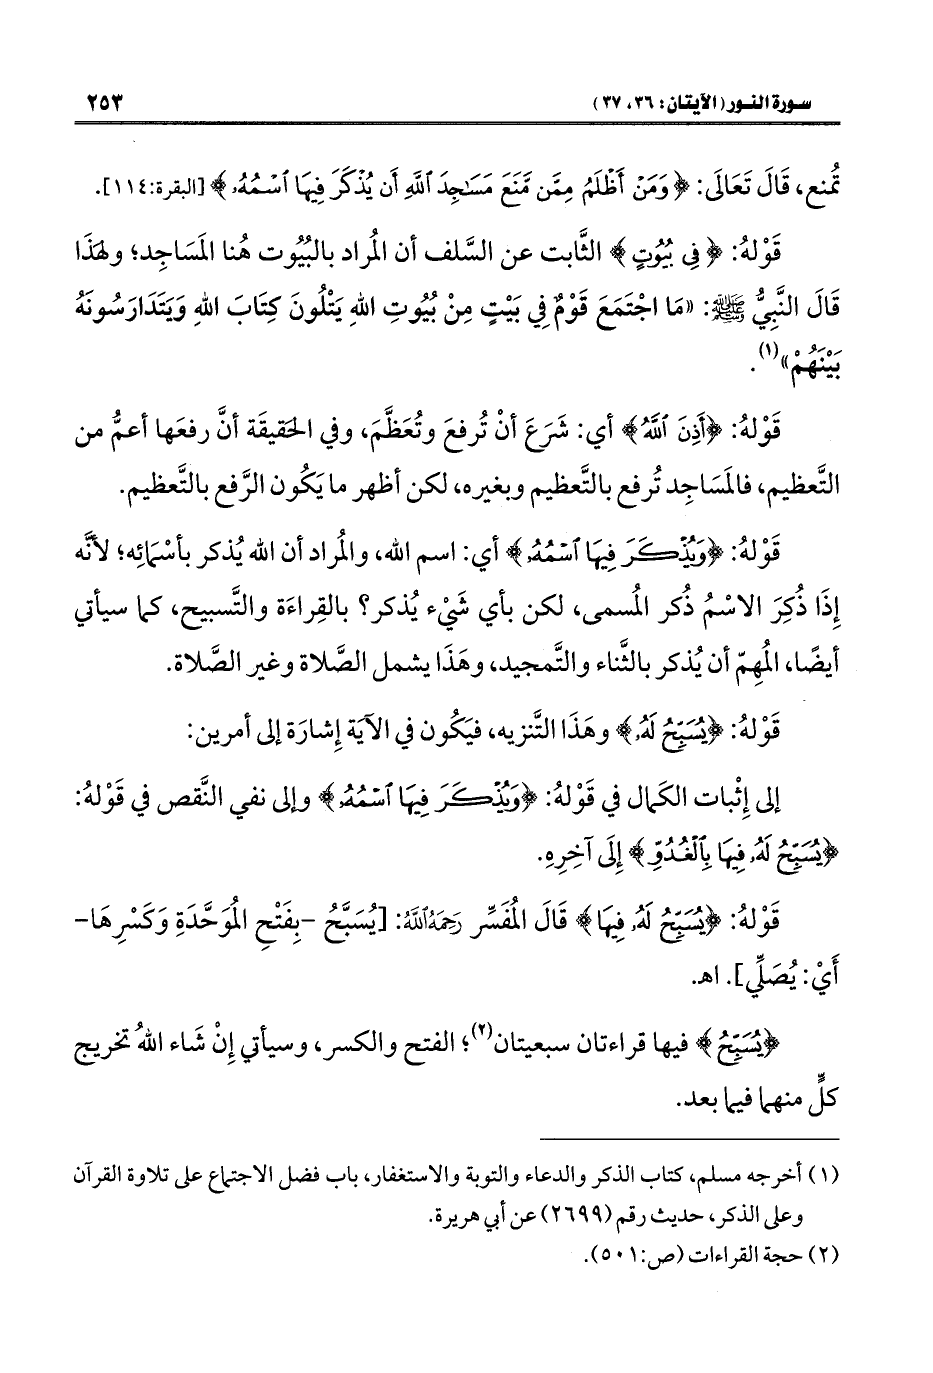 سورة النور (الآيتان: ٣٦، ٣٧) ٢٥٣
تُمنع، قَالَ تَعَالَى: ﴿وَمَنْ أَظْلَمُ مِمَّن مَّنَعَ مَسَٰجِدَ ٱللَّهِ أَن يُذْكَرَ فِيهَا ٱسْمُهُۥ﴾ [البقرة:١١٤].
قَوْلهُ: ﴿فِي بُيُوتٍ﴾ الثَّابت عن السَّلف أن المُراد بالبُيُوت هُنا المَساجِد؛ ولهَذَا
قَالَ النَّبِيُّ ﷺ: «مَا اجْتَمَعَ قَوْمٌ فِي بَيْتٍ مِنْ بُيُوتِ اللهِ يَتْلُونَ كِتَابَ اللهِ وَيَتَدَارَسُونَهُ
بَيْنَهُمْ»(١).
قَوْلهُ: ﴿أَذِنَ ٱللَّهُ﴾ أي: شَرَعَ أنْ تُرفعَ وتُعَظَّمَ، وفي الحَقيقَة أنَّ رفعَها أعمُّ من
التَّعظيم، فالمَسَاجِد تُرفع بالتَّعظيم وبغيره، لكن أظهر ما يَكُون الرَّفع بالتَّعظيم.
قَوْلهُ: ﴿وَيُذْكَرَ فِيهَا ٱسْمُهُۥ﴾ أي: اسم الله، والمُراد أن الله يُذكر بأسْمَائِه؛ لأنَّه
إذَا ذُكِرَ الاسْمُ ذُكر المُسمى، لكن بأي شَيْء يُذكر؟ بالقِراءَة والتَّسبيح، كما سيأتي
أيضًا، المُهِمّ أن يُذكر بالثَّناء والتَّمجيد، وهَذَا يشمل الصَّلاة وغير الصَّلاة.
قَوْلهُ: ﴿يُسَبِّحُ لَهُۥ﴾ وهَذَا التَّنزيه، فيَكُون في الآيَة إشارَة إلى أمرين:
إلى إثْبات الكَمال في قَوْلهُ: ﴿وَيُذْكَرَ فِيهَا ٱسْمُهُۥ﴾ وإلى نفي النَّقص في قَوْلهُ:
﴿يُسَبِّحُ لَهُۥ فِيهَا بِٱلْغُدُوِّ﴾ إِلَى آخِرِهِ.
قَوْلهُ: ﴿يُسَبِّحُ لَهُۥ فِيهَا﴾ قَالَ المُفَسِّر رَحِمَهُ ٱللَّهُ: [يُسَبَّحُ -بِفَتْحِ المُوَحَّدَةِ وَكَسْرِهَا-
أَيْ: يُصَلِّي]. اهـ.
﴿يُسَبِّحُ﴾ فيها قراءتان سبعيتان(٢)؛ الفتح والكسر، وسيأتي إنْ شَاء اللهُ تخريج
كلٍّ منهما فيما بعد.
(١) أخرجه مسلم، كتاب الذكر والدعاء والتوبة والاستغفار، باب فضل الاجتماع على تلاوة القرآن
وعلى الذكر، حديث رقم (٢٦٩٩) عن أبي هريرة.
(٢) حجة القراءات (ص:٥٠١).